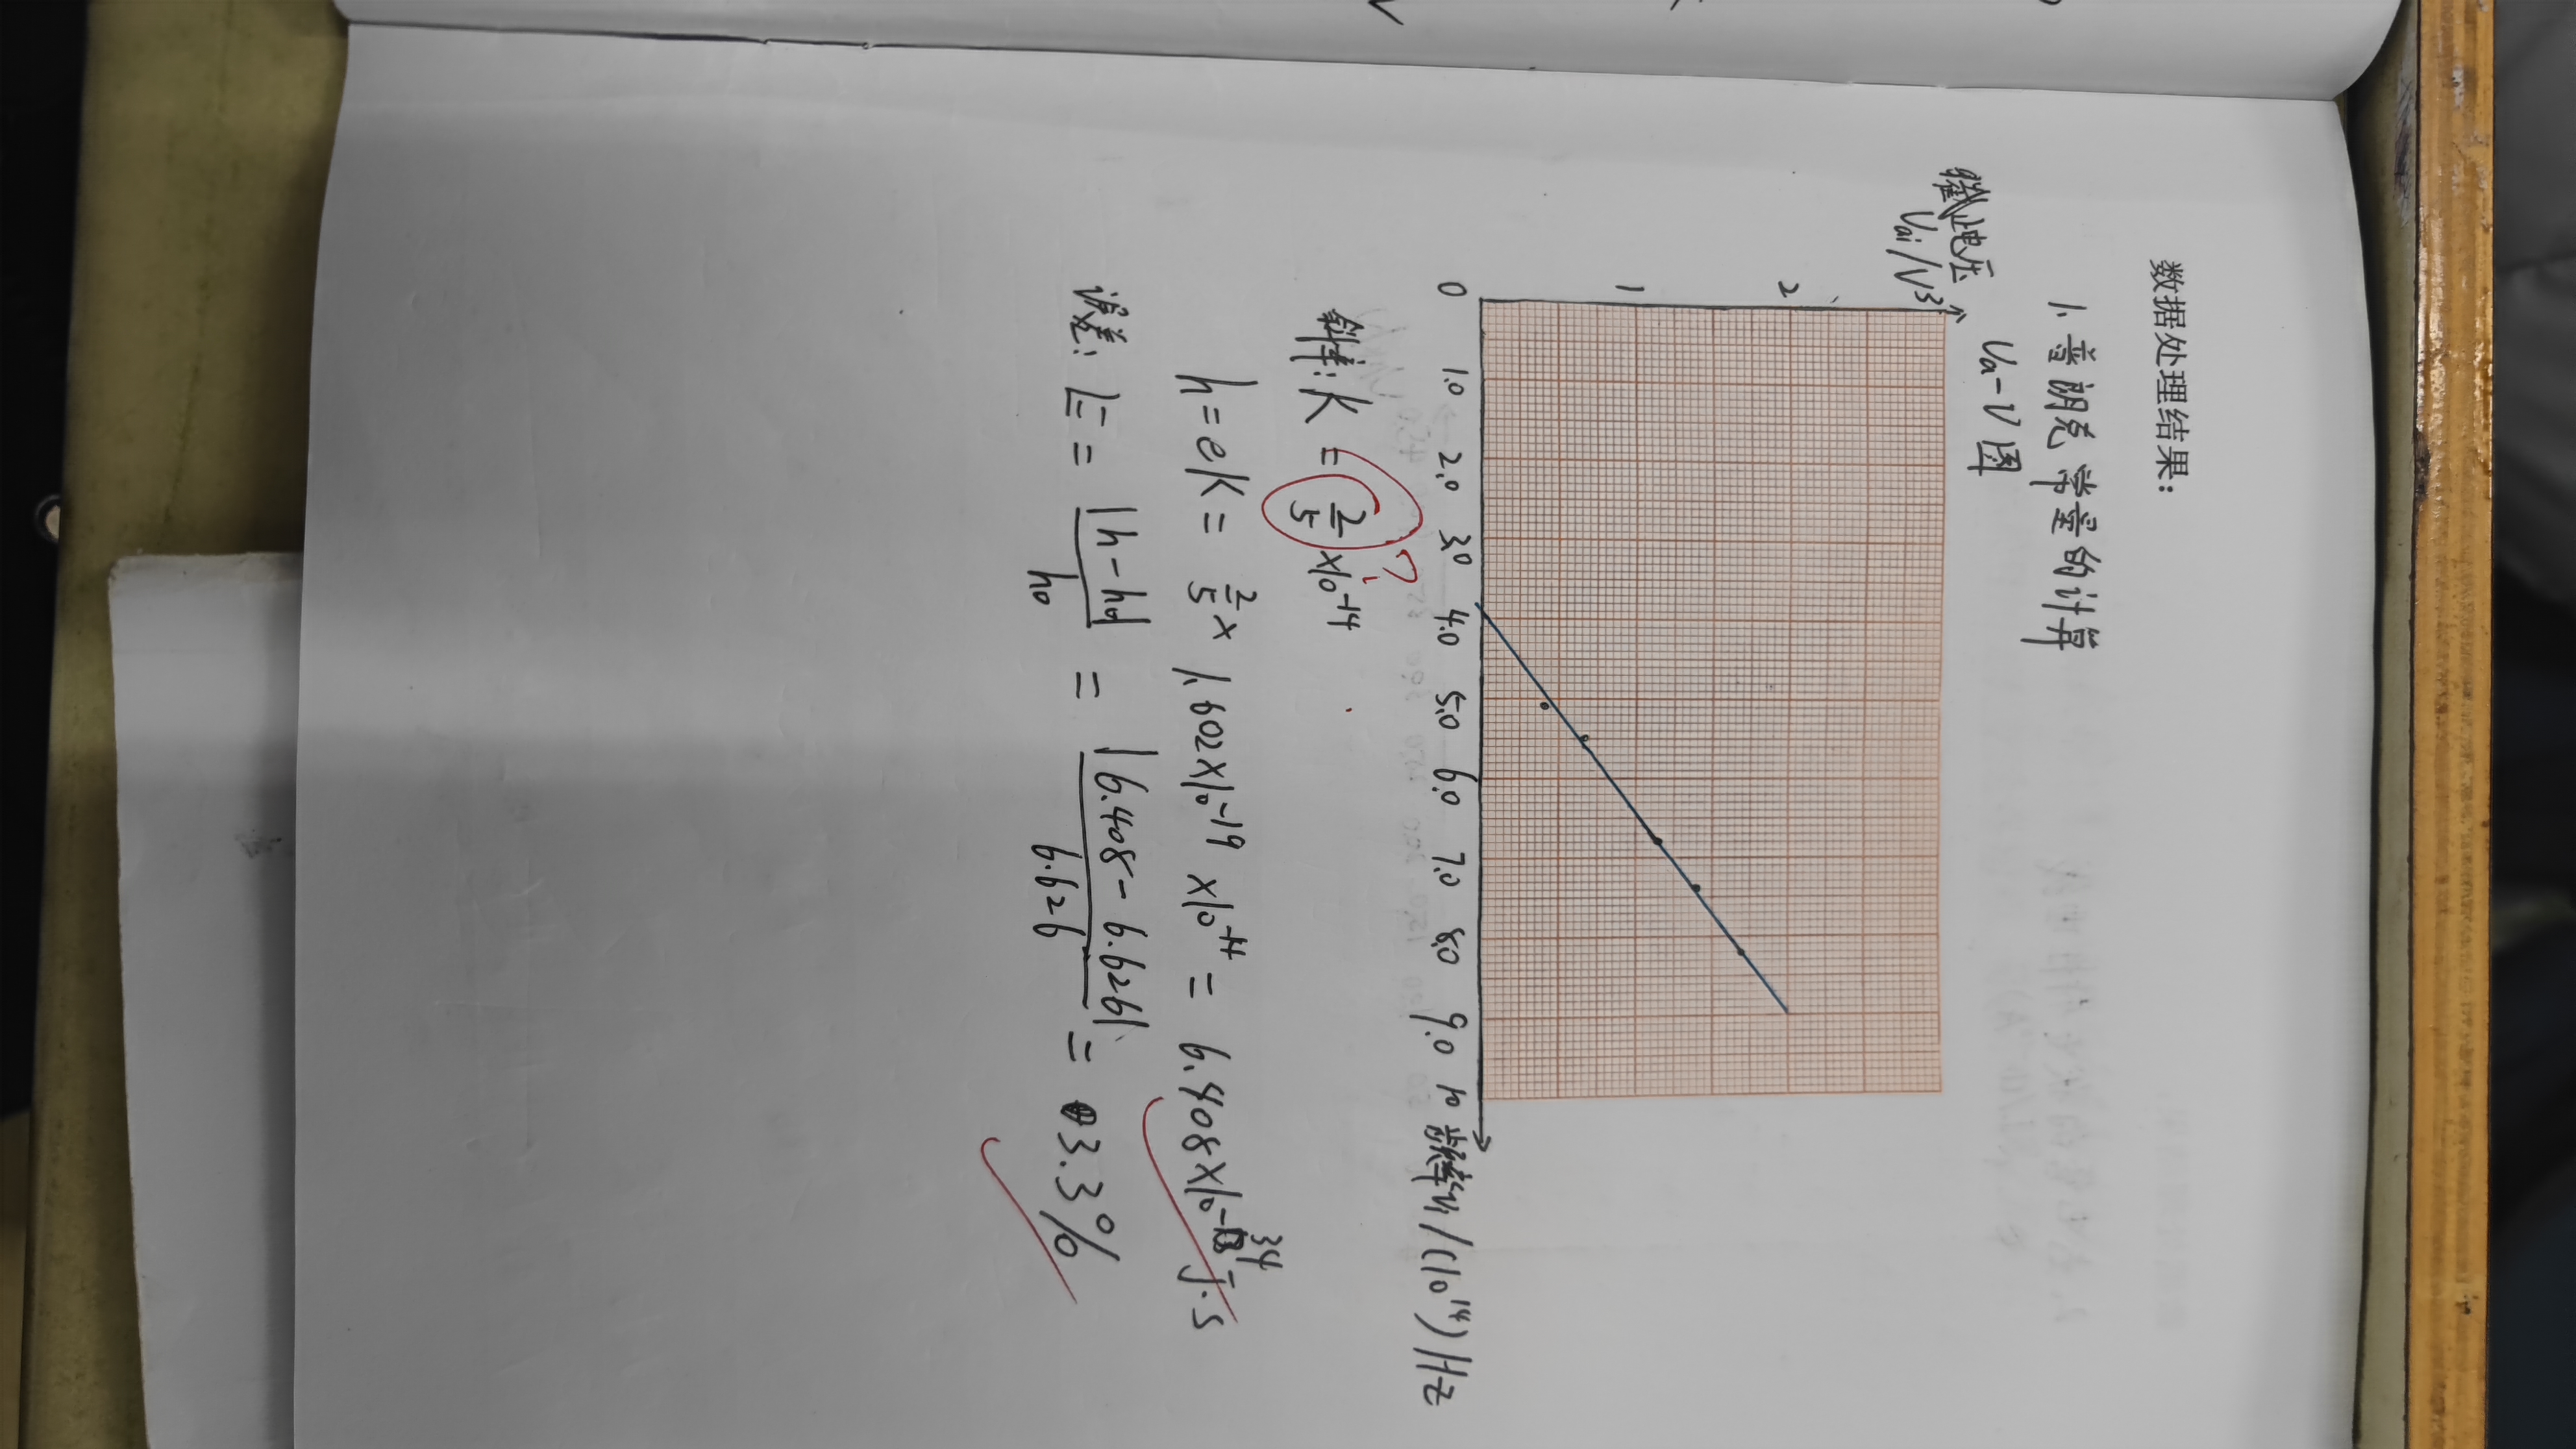 数据处理结果：
1. 普朗克常量的计算
Ua-ν图
截止电压
Uai/V
3
2
1
0 1.0 2.0 3.0 4.0 5.0 6.0 7.0 8.0 9.0 10 频率νi/(10¹⁴)Hz
斜率：K = 2/5 ×10⁻¹⁴
?
h=eK= 2/5 × 1.602×10⁻¹⁹ ×10⁻¹⁴ = 6.408×10⁻³⁴ J·S
误差：E = |h-h₀|/h₀ = |6.408-6.626|/6.626 = 3.3%